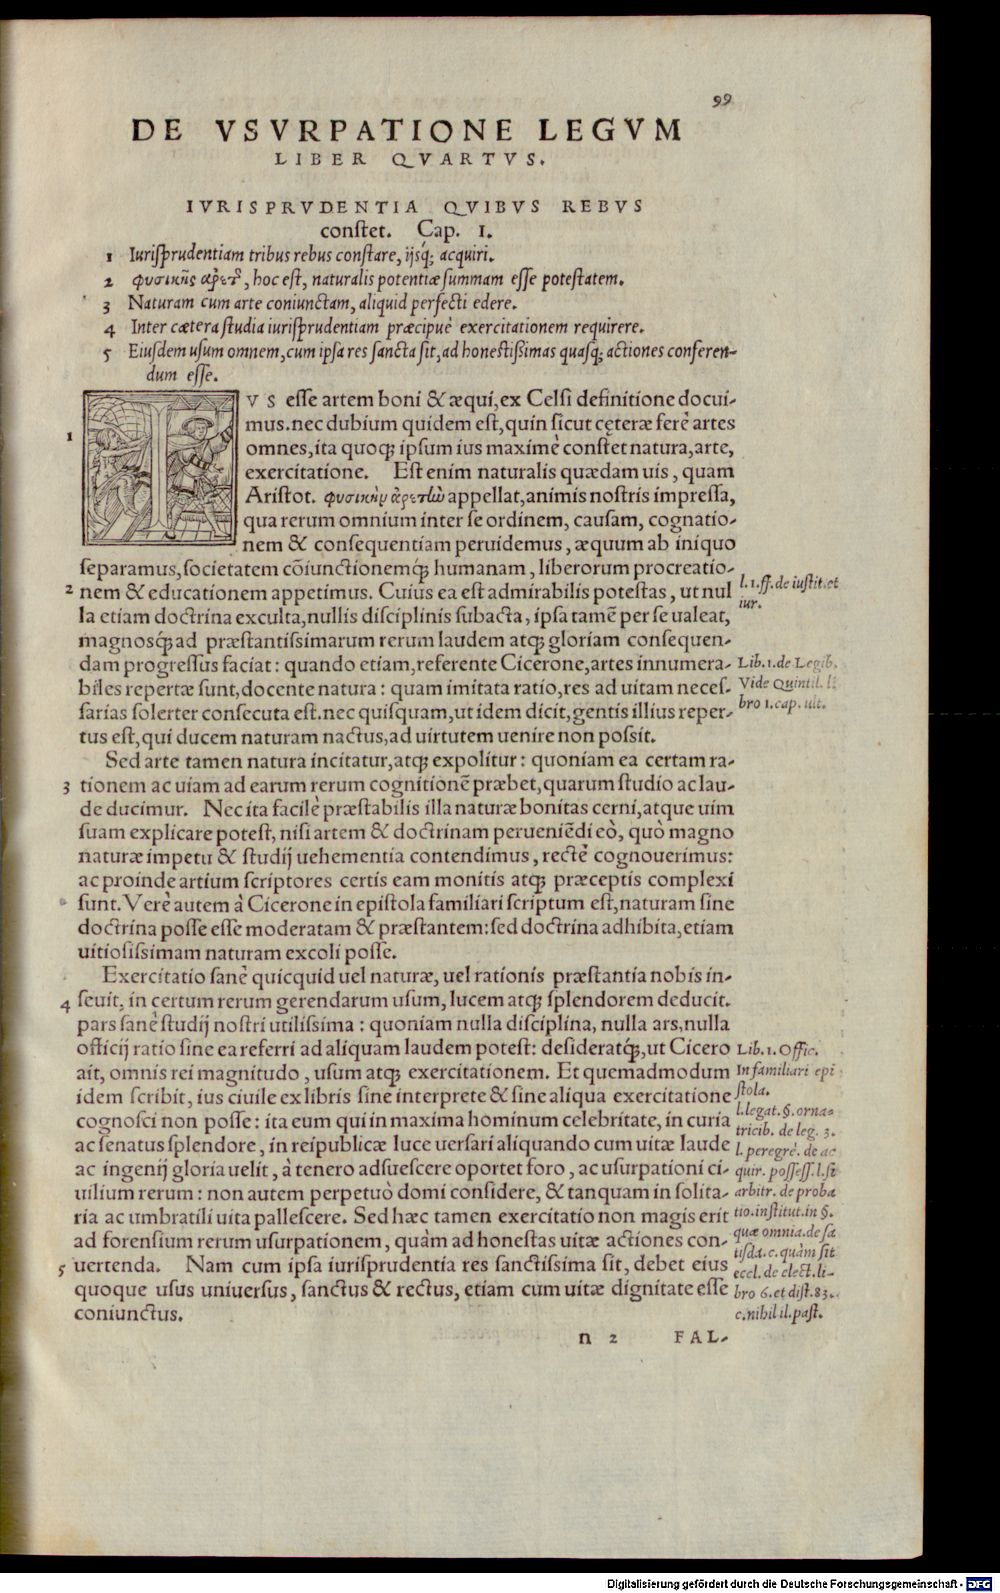 99
DE VSVRPATIONE LEGVM
LIBER QVARTVS.
IVRISPRVDENTIA QVIBVS REBVS
constet. Cap. I.
1 Iurisprudentiam tribus rebus constare, ijsq́; acquiri.
2 φυσικῆς ἀρετῆς, hoc est, naturalis potentiæ summam esse potestatem.
3 Naturam cum arte coniunctam, aliquid perfecti edere.
4 Inter cætera studia iurisprudentiam præcipuè exercitationem requirere.
5 Eiusdem usum omnem, cum ipsa res sancta sit, ad honestißimas quasq; actiones conferen-
dum esse.
IVS esse artem boni & æqui, ex Celsi definitione docui-
1 mus. nec dubium quidem est, quin sicut cęteræ ferè artes
omnes, ita quoq; ipsum ius maximè constet natura, arte,
exercitatione. Est enim naturalis quædam uis, quam
Aristot. φυσικὴν ἀρετὴν appellat, animis nostris impressa,
qua rerum omnium inter se ordinem, causam, cognatio-
nem & consequentiam peruidemus, æquum ab iniquo
separamus, societatem cōiunctionemq́; humanam, liberorum procreatio-
2 nem & educationem appetimus. Cuius ea est admirabilis potestas, ut nul
la etiam doctrina exculta, nullis disciplinis subacta, ipsa tamē per se ualeat,
magnosq́; ad præstantissimarum rerum laudem atq; gloriam consequen-
dam progressus faciat: quando etiam, referente Cicerone, artes innumera-
biles repertæ sunt, docente natura: quam imitata ratio, res ad uitam neces-
sarias solerter consecuta est. nec quisquam, ut idem dicit, gentis illius reper-
tus est, qui ducem naturam nactus, ad uirtutem uenire non possit.
l. 1. ff. de iustit. et
iur.
Lib. 1. de Legib.
Vide Quintil. li
bro 1. cap. ult.
Sed arte tamen natura incitatur, atq; expolitur: quoniam ea certam ra-
3 tionem ac uiam ad earum rerum cognitionē præbet, quarum studio ac lau-
de ducimur. Nec ita facilè præstabilis illa naturæ bonitas cerni, atque uim
suam explicare potest, nisi artem & doctrinam perueniēdi eò, quò magno
naturæ impetu & studij uehementia contendimus, rectè cognouerimus:
ac proinde artium scriptores certis eam monitis atq; præceptis complexi
sunt. Verè autem à Cicerone in epistola familiari scriptum est, naturam sine
doctrina posse esse moderatam & præstantem: sed doctrina adhibita, etiam
uitiosissimam naturam excoli posse.
Exercitatio sanè quicquid uel naturæ, uel rationis præstantia nobis in-
4 seuit, in certum rerum gerendarum usum, lucem atq; splendorem deducit.
pars sanè studij nostri utilissima: quoniam nulla disciplina, nulla ars, nulla
officij ratio sine ea referri ad aliquam laudem potest: desideratq́;, ut Cicero
ait, omnis rei magnitudo, usum atq; exercitationem. Et quemadmodum
idem scribit, ius ciuile ex libris sine interprete & sine aliqua exercitatione
cognosci non posse: ita eum qui in maxima hominum celebritate, in curia
ac senatus splendore, in reipublicæ luce uersari aliquando cum uitæ laude
ac ingenij gloria uelit, à tenero adsuescere oportet foro, ac usurpationi ci-
uilium rerum: non autem perpetuò domi considere, & tanquam in solita-
ria ac umbratili uita pallescere. Sed hæc tamen exercitatio non magis erit
ad forensium rerum usurpationem, quàm ad honestas uitæ actiones con-
5 uertenda. Nam cum ipsa iurisprudentia res sanctissima sit, debet eius
quoque usus uniuersus, sanctus & rectus, etiam cum uitæ dignitate esse
coniunctus.
Lib. 1. Offic.
In familiari epi
stola.
l. legat. §. orna-
tricib. de leg. 3.
l. peregrè. de ac
quir. possess. l. si
arbitr. de proba
tio. institut. in §.
quæ omnia. de sa
tisda. c. quàm sit
eccl. de elect. li-
bro 6. et dist. 83.
c. nihil il. past.
n 2 FAL-
Digitalisierung gefördert durch die Deutsche Forschungsgemeinschaft - DFG